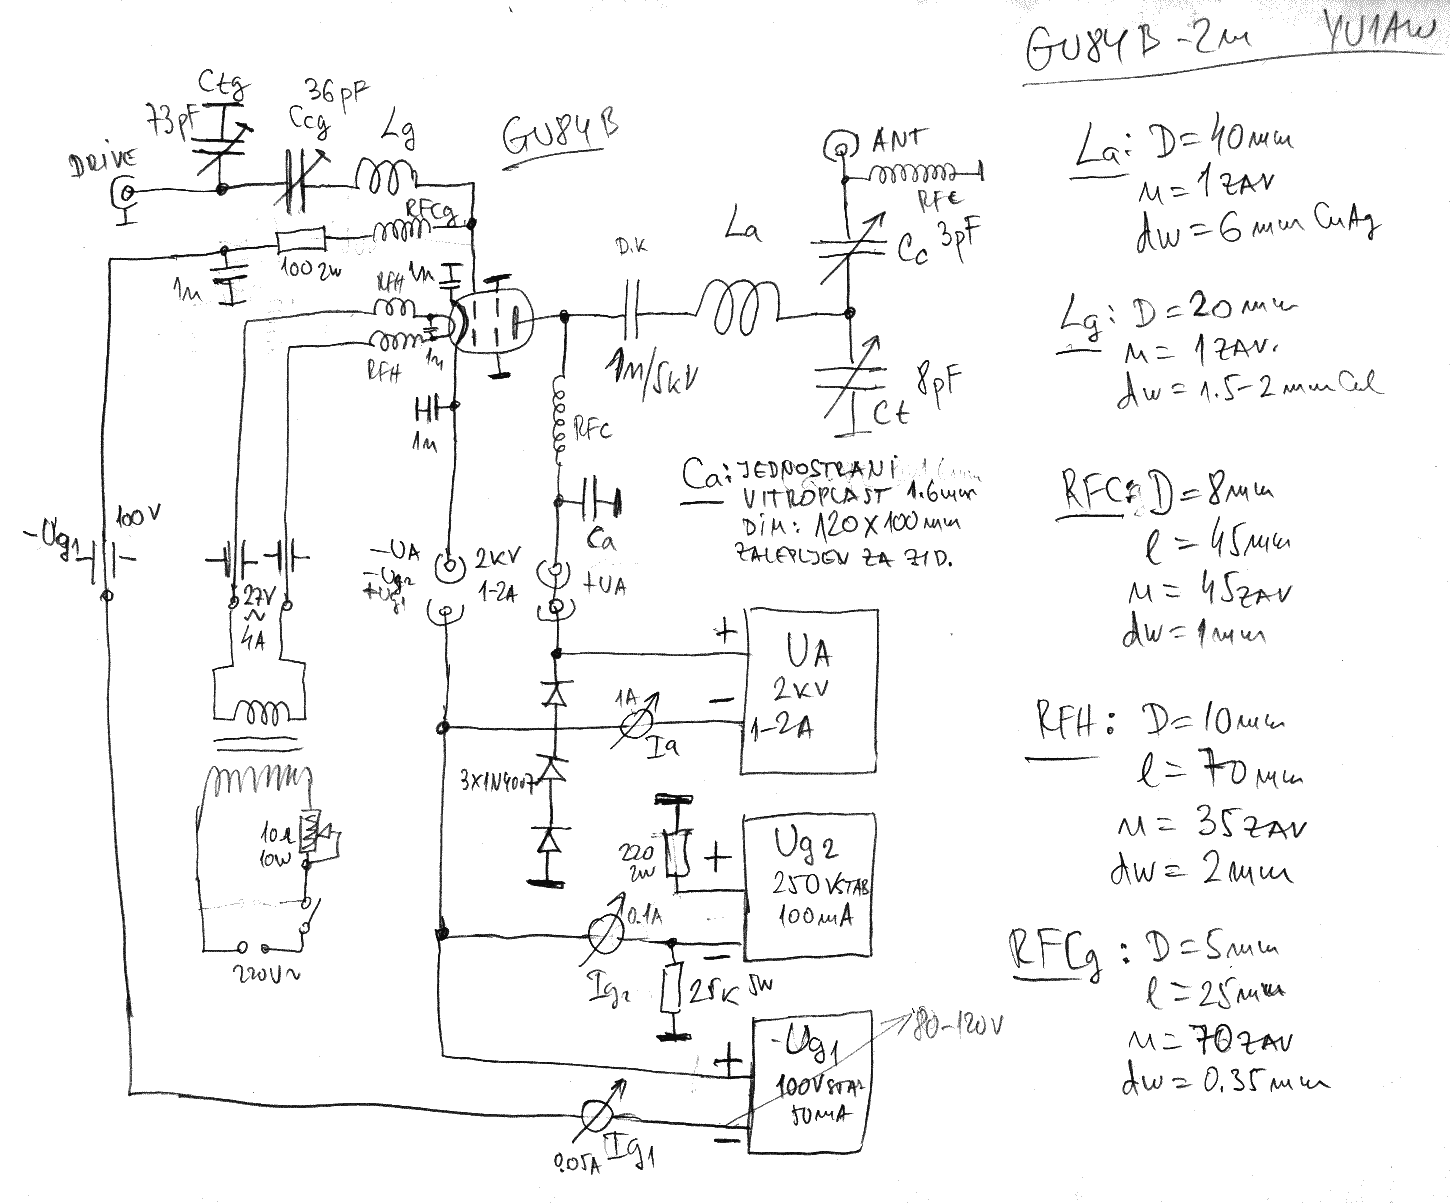 GU84B - 2m YU1AW
Ctg
73pF
36pF
Ccg
Lg
GU84B
DRIVE
ANT
RFC
RFCg
100 2W
1n
RFH
1n
RFH
1n
1n
D.K
1n/5kV
La
Cc 3pF
8pF
Ct
RFC
Ca
Ca: JEDNOSTRANI
VITROPLAST 1.6mm
DIM: 120X100mm
ZALEPLJEN ZA ZID.
-Ug1
100V
27V
~
4A
-UA
-Ug2
+Ug1
2KV
1-2A
+UA
UA
2KV
1-2A
+
-
1A
Ia
3X1N4007
10Ω
10W
220V~
220
2W
+
-
Ug2
250VSTAB
100mA
0.1A
Ig2
25K 5W
+
-
-Ug1
100VSTAB
50mA
80-120V
0.05A
Ig1
La: D=40mm
n=1ZAV
dw=6mm CuAg
Lg: D=20mm
n=1ZAV.
dw=1.5-2mm CuL
RFC: D=8mm
l=45mm
n=45ZAV
dw=1mm
RFH: D=10mm
l=70mm
n=35ZAV
dw=2mm
RFCg: D=5mm
l=25mm
n=70ZAV
dw=0.35mm